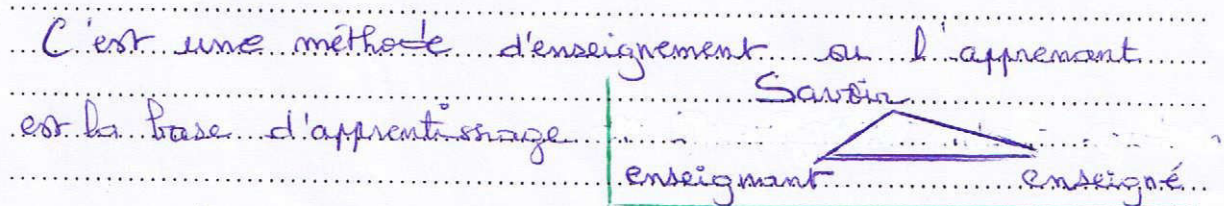 C'est une méthode d'enseignement ou l'apprenant
Savoir
est la base d'apprentissage
enseignant enseigné